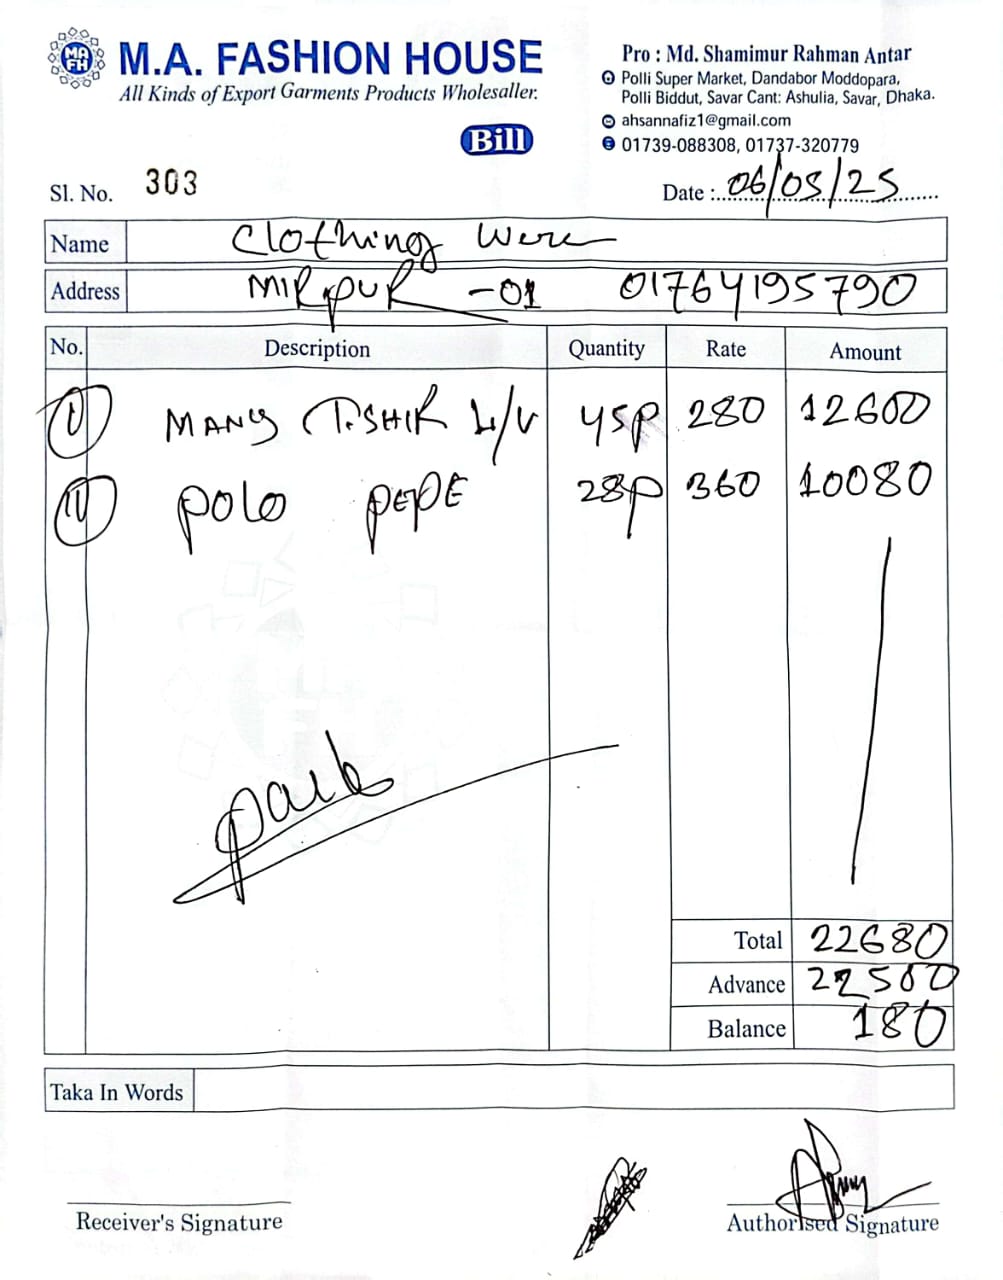 M.A. FASHION HOUSE
All Kinds of Export Garments Products Wholesaller.
Pro : Md. Shamimur Rahman Antar
Polli Super Market, Dandabor Moddopara,
Polli Biddut, Savar Cant: Ashulia, Savar, Dhaka.
ahsannafiz1@gmail.com
01739-088308, 01737-320779
Bill
Sl. No. 303
Date : 06/05/25
Name Clothing Were
Address MIRPUR -01 01764195790
No. Description Quantity Rate Amount
MANS T.SHIR 45P 280 12600
POLO PEPE 28P 360 10080
Paid
Total 22680
Advance 22500
Balance 180
Taka In Words
Receiver's Signature
Authorised Signature